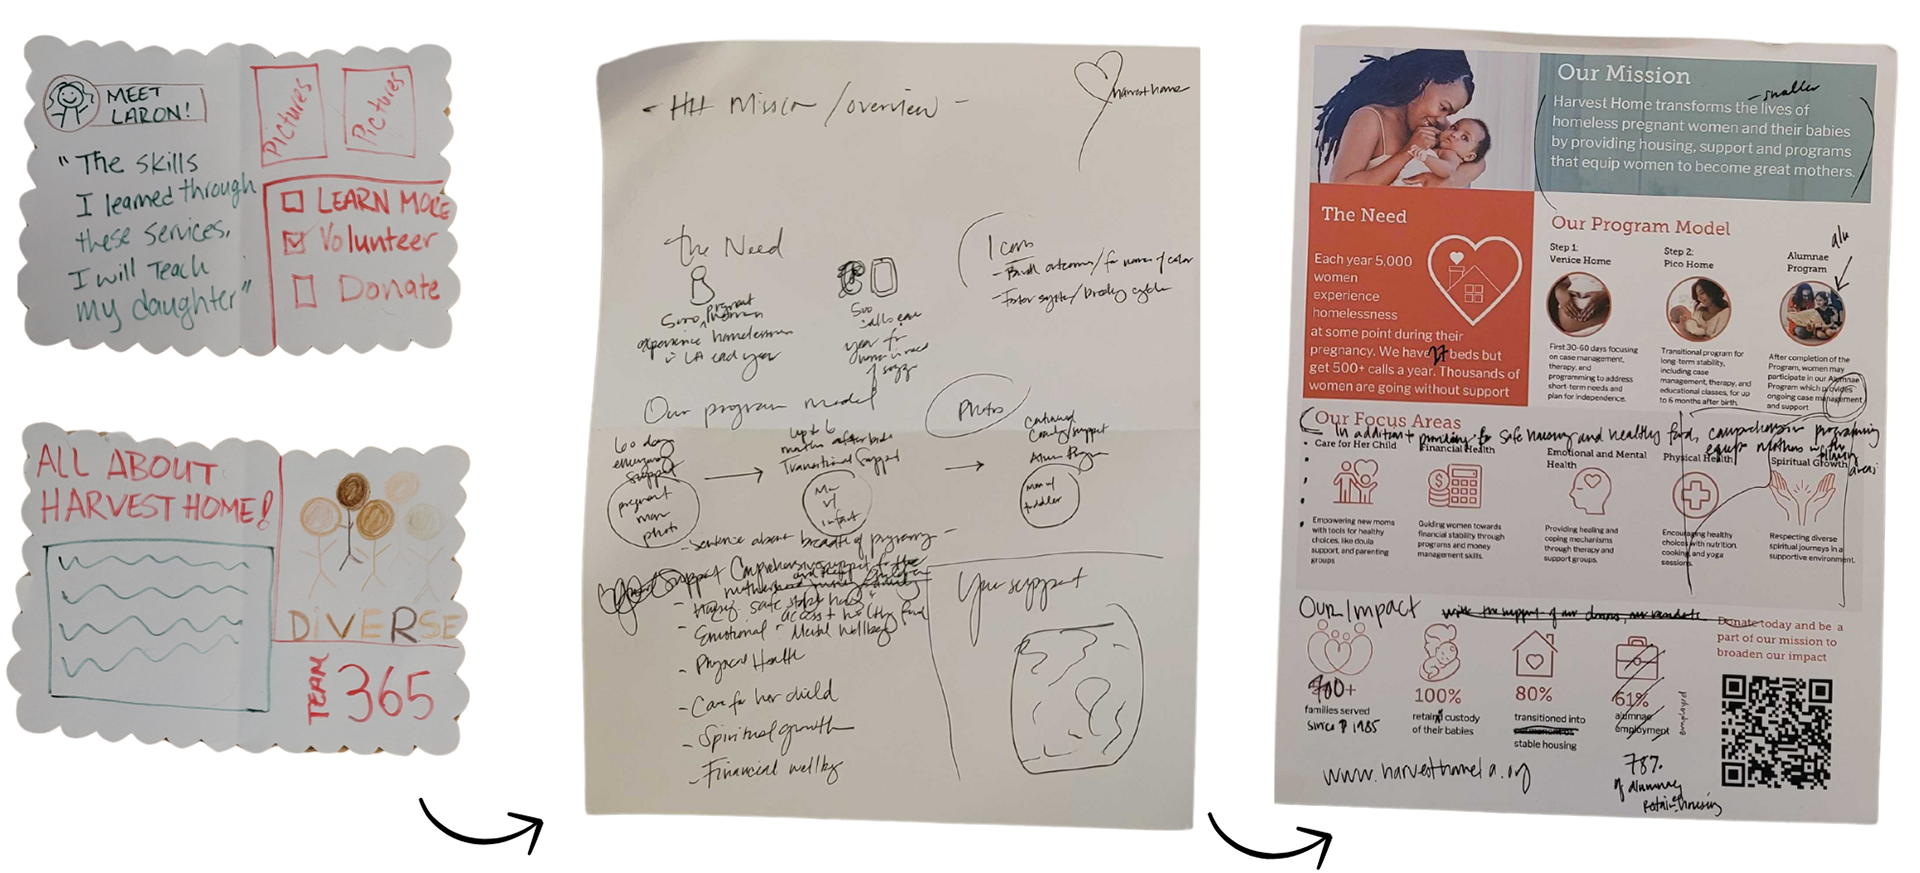 MEET
LARON!
"The skills
I learned through
these services,
I will teach
my daughter"
Pictures
Pictures
LEARN MORE
Volunteer
Donate
ALL ABOUT
HARVEST HOME!
DIVERSE
TEAM
365
- HH Mission/overview -
harvest home
the Need
5000 pregnant
women
experience homelessness
in LA each year
500
calls each
year for
Icons
- Birth outcomes/for women of color
- Foster system/breaking cycle
Our program model
photos
60 day
emergency
support
pregnant
mom
photo
up to 6
months after birth
Transitional Support
mom
w/
infant
continued
Community support
Alum Program
mom w/
toddler
- Sentence about breadth of programs -
Support Comprehensive support to the
- Housing: safe, stable home &
access to healthy food
- Emotional & Mental Wellbeing
- Physical Health
- Care for her child
- Spiritual growth
- Financial wellbeing
Your support
Our Mission
- smaller
Harvest Home transforms the lives of
homeless pregnant women and their babies
by providing housing, support and programs
that equip women to become great mothers.
The Need
Each year 5,000
women
experience
homelessness
at some point during their
pregnancy. We have 27 beds but
get 500+ calls a year. Thousands of
women are going without support
Our Program Model
Step 1:
Venice Home
First 30-60 days focusing
on case management,
therapy, and
programming to address
short-term needs and
plan for independence.
Step 2:
Pico Home
Transitional program for
long-term stability,
including case
management, therapy, and
educational classes, for up
to 6 months after birth.
alu
Alumnae
Program
After completion of the
Program, women may
participate in our Alumnae
Program which provides
ongoing case management
and support
Our Focus Areas
In addition to providing safe housing and healthy food, comprehensive programming
equip mothers with
following
areas:
Care for Her Child
Empowering new moms
with tools for healthy
choices, like doula
support, and parenting
groups
Financial Health
Guiding women towards
financial stability through
programs and money
management skills.
Emotional and Mental
Health
Providing healing and
coping mechanisms
through therapy and
support groups.
Physical Health
Encouraging healthy
choices with nutrition,
cooking, and yoga
sessions.
Spiritual Growth
Respecting diverse
spiritual journeys in a
supportive environment.
Our Impact
with the support of our donors,
700+
families served
since 1985
100%
retain custody
of their babies
80%
transitioned into
stable housing
61%
alumnae
employment
employed
78%
of alumnae
retained housing
Donate today and be a
part of our mission to
broaden our impact
www.harvesthomela.org